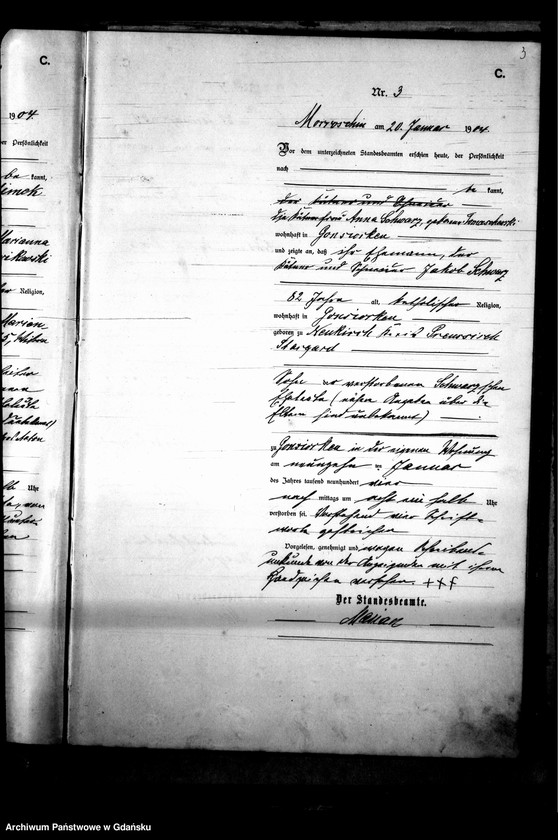 C.
1904
der Persönlichkeit
kannt,
Marianna
Religion,
Marian
Uhr
3
C.
Nr. 3
Morroschin am 20. Januar 1904.
Vor dem unterzeichneten Standesbeamten erschien heute, der Persönlichkeit
nach
be kannt,
der Kätner und Schneider
die Kätnerfrau Anna Schwarz, geborene
wohnhaft in Gonsiorken
und zeigte an, daß ihr Ehemann, der
Kätner und Schneider Jakob Schwarz
82 Jahre alt, katholischer Religion,
wohnhaft in Gonsiorken
geboren zu Neukirch Kreis Preussisch
Stargard
Sohn der verstorbenen Schwarz'schen
Eheleute (nähere Angaben über die
Eltern sind unbekannt)
zu Gonsiorken in der eigenen Wohnung
am neunzehn ten Januar
des Jahres tausend neunhundert vier
nach mittags um acht ein halb Uhr
verstorben sei. Vorstehend vier Druck-
worte gestrichen
Vorgelesen, genehmigt und wegen Schreibens-
unkunde von der Anzeigenden mit ihrem
Handzeichen versehen. +++
Der Standesbeamte.
Archiwum Państwowe w Gdańsku